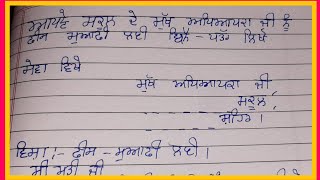 ਆਪਣੇ ਸਕੂਲ ਦੇ ਮੁੱਖ ਅਧਿਆਪਕਾ ਜੀ ਨੂੰ
ਫ਼ੀਸ ਮੁਆਫ਼ੀ ਲਈ ਬਿਨੈ-ਪੱਤਰ ਲਿਖੋ
ਸੇਵਾ ਵਿਖੇ
ਮੁੱਖ ਅਧਿਆਪਕਾ ਜੀ,
ਸਕੂਲ,
ਸ਼ਹਿਰ।
ਵਿਸ਼ਾ :- ਫ਼ੀਸ-ਮੁਆਫ਼ੀ ਲਈ।
ਸ੍ਰੀ ਮਤੀ ਜੀ